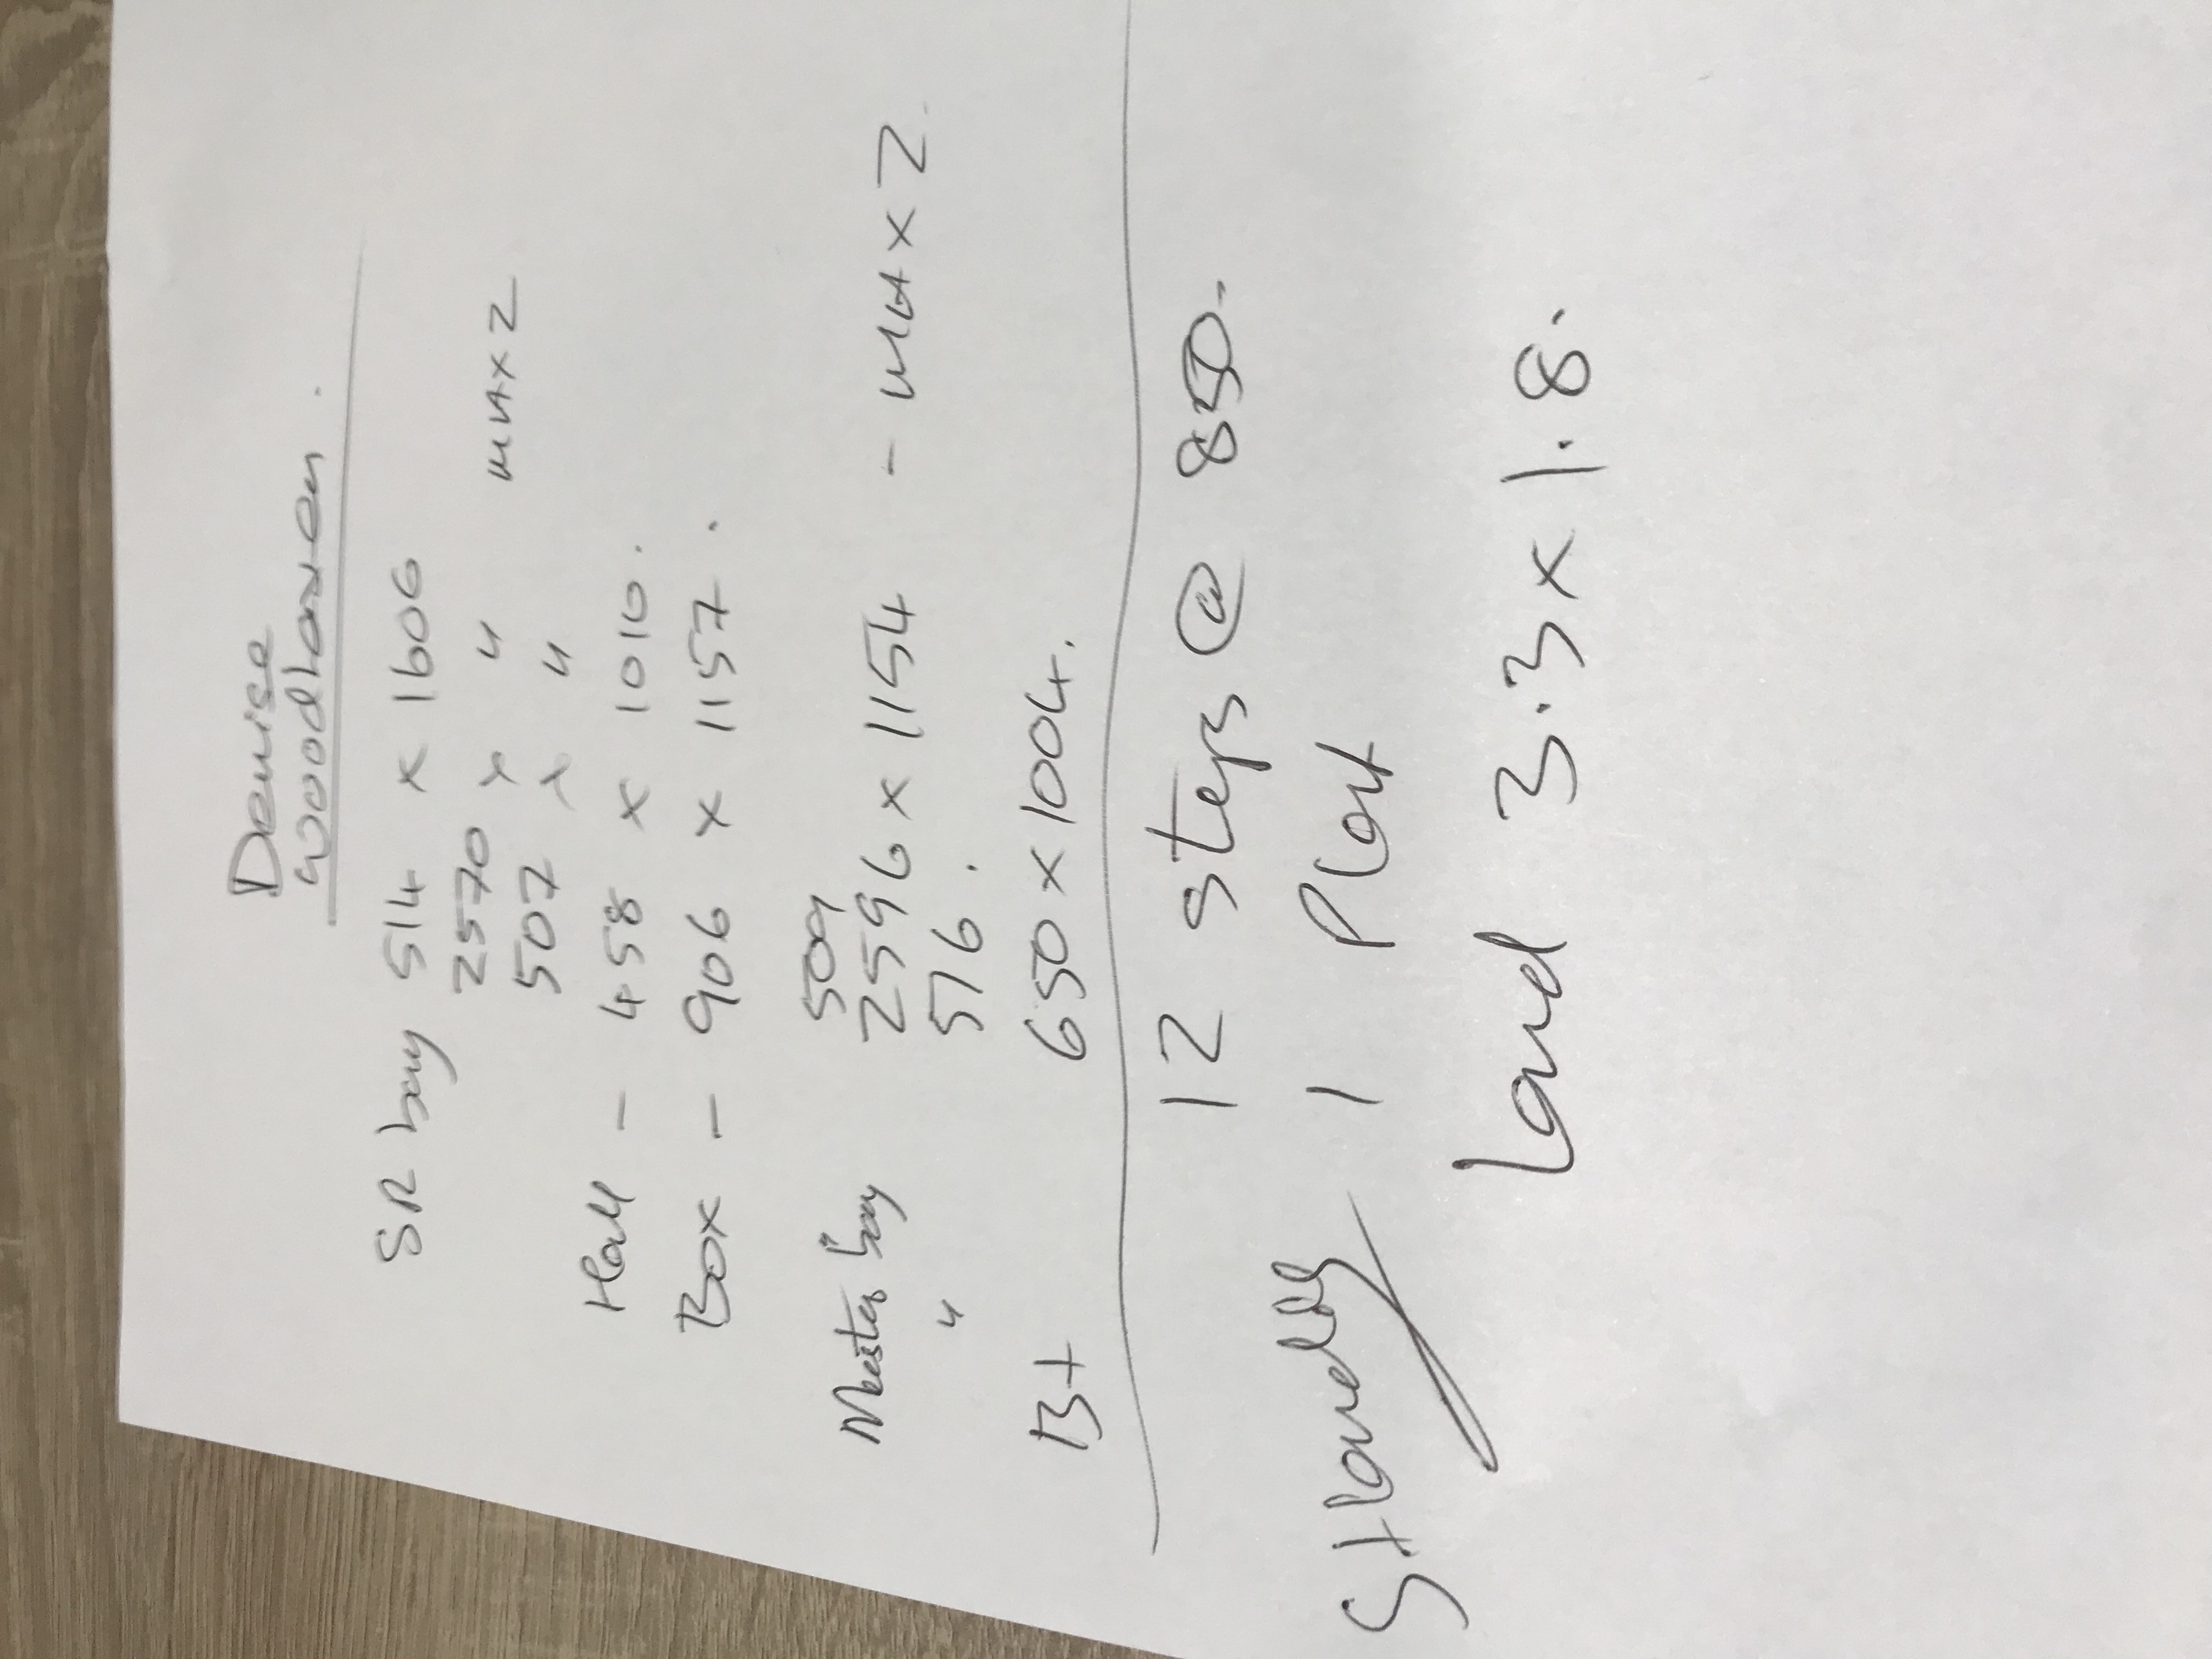 Denise
SR bay 514 x 1606
2570 x "
507 x " MAX 2
Hall - 458 x 1010.
Box - 906 x 1157.
509
Master bay 2596 x 1154 - MAX 2.
" 516.
B+ 650 x 1004.
12 steps @ 850.
1 Plat
Land 3.3 x 1.8.